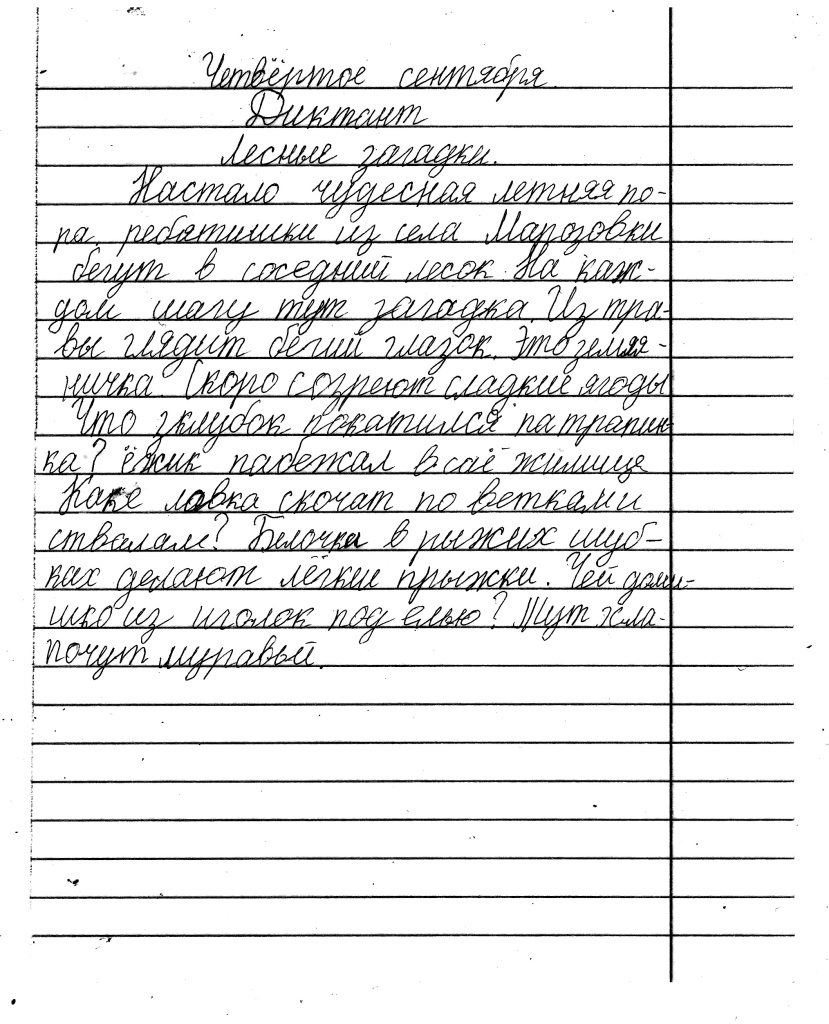 Четвёртое сентября.
Диктант
Лесные загадки.
Настало чудесная летняя по-
ра. ребятишки из села Марозовки
бегут в соседний лесок. На каж-
дом шагу тут загадка. Из тра-
вы глядит бегий глазок. Это земля-
ничка. Скоро созреют сладкие ягоды
Что зклубок покатился па трапин-
ка? ёжик пабежал в саё жилище
Каке ловка скочат по веткам и
ствалам? Белочки в рыжих шуб-
ках делают лёгкии прыжки. Чей доми-
шко из иголок под елью? Тут хла-
почут муравьи.